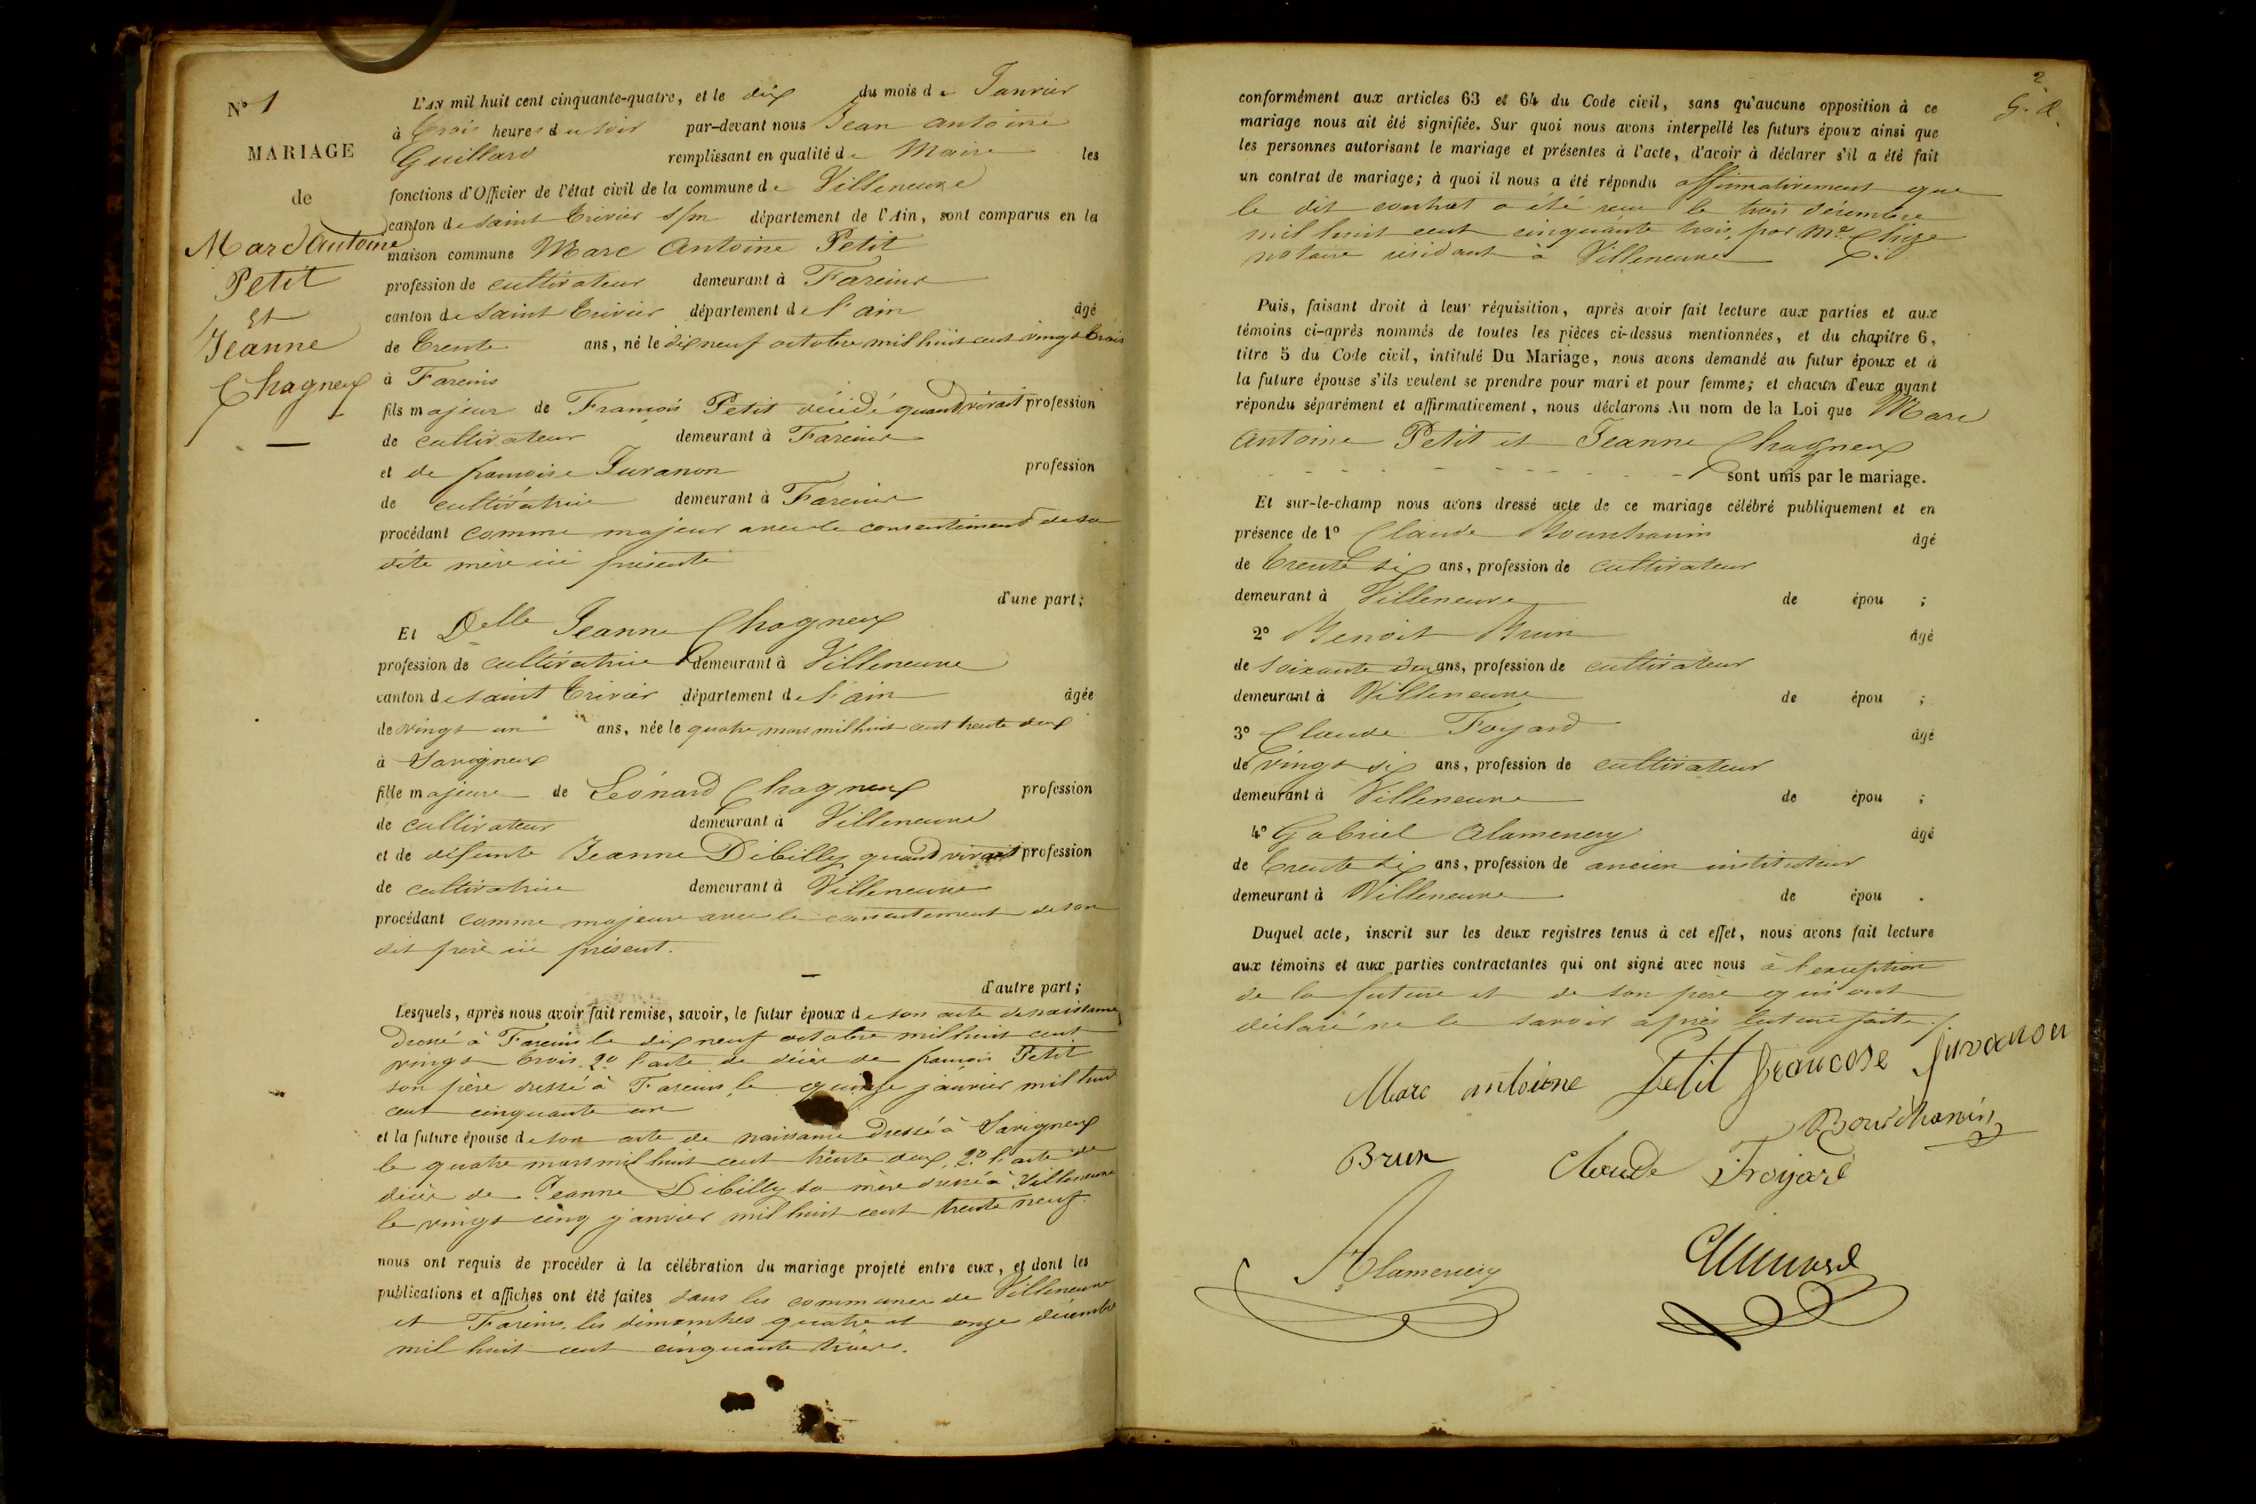 N° 1
MARIAGE
de
Marc Antoine
Petit
Et
Jeanne
Chagneux
L'AN mil huit cent cinquante-quatre, et le dix du mois de Janvier
à trois heures du soir par-devant nous Jean Antoine
Guillard remplissant en qualité de Maire les
fonctions d'Officier de l'état civil de la commune de Villeneuve
canton de saint Trivier s/m département de l'Ain, sont comparus en la
maison commune Marc Antoine Petit
profession de cultivateur demeurant à Fareins
canton de saint Trivier département de l'ain âgé
de Trente ans, né le dix neuf octobre mil huit cent vingt trois
à Fareins
fils majeur de François Petit décédé quand vivait profession
de cultivateur demeurant à Fareins
et de françoise Juvanon profession
de cultivatrice demeurant à Fareins
procédant comme majeur avec le consentement de sa
dite mère ici présente
d'une part;
Et Delle Jeanne Chagneux
profession de cultivatrice demeurant à Villeneuve
canton de saint Trivier département de l'ain âgée
de vingt un ans, née le quatre mars mil huit cent trente deux
à Savigneux
fille majeure de Léonard Chagneux profession
de cultivateur demeurant à Villeneuve
et de défunte Jeanne Dibilly quand vivait profession
de cultivatrice demeurant à Villeneuve
procédant comme majeure avec le consentement de son
dit père ici présent.
d'autre part;
Lesquels, après nous avoir fait remise, savoir, le futur époux de son acte de naissance
dressé à Fareins le dix neuf octobre mil huit cent
vingt trois. 2° l'acte de décès de françois Petit
son père dressé à Fareins le quinze janvier mil huit
cent cinquante un
et la future épouse de son acte de naissance dressé à Savigneux
le quatre mars mil huit cent trente deux, 2° l'acte de
décès de Jeanne Dibilly sa mère dressé à Villeneuve
le vingt cinq janvier mil huit cent trente neuf.
nous ont requis de procéder à la célébration du mariage projeté entre eux, et dont les
publications et affiches ont été faites dans les communes de Villeneuve
et Fareins, les dimanches quatre et onze décembre
mil huit cent cinquante trois.
2
G. A.
conformément aux articles 63 et 64 du Code civil, sans qu'aucune opposition à ce
mariage nous ait été signifiée. Sur quoi nous avons interpellé les futurs époux ainsi que
les personnes autorisant le mariage et présentes à l'acte, d'avoir à déclarer s'il a été fait
un contrat de mariage; à quoi il nous a été répondu affirmativement que
le dit contrat a été reçu le trois décembre
mil huit cent cinquante trois, par Me
notaire résidant à Villeneuve
Puis, faisant droit à leur réquisition, après avoir fait lecture aux parties et aux
témoins ci-après nommés de toutes les pièces ci-dessus mentionnées, et du chapitre 6,
titre 5 du Code civil, intitulé Du Mariage, nous avons demandé au futur époux et à
la future épouse s'ils veulent se prendre pour mari et pour femme; et chacun d'eux ayant
répondu séparément et affirmativement, nous déclarons Au nom de la Loi que Marc
antoine Petit et Jeanne Chagneux
sont unis par le mariage.
Et sur-le-champ nous avons dressé acte de ce mariage célébré publiquement et en
présence de 1° Claude Bourchanin âgé
de trente six ans, profession de cultivateur
demeurant à Villeneuve de épou ;
2° Benoit Brun âgé
de soixante deux ans, profession de cultivateur
demeurant à Villeneuve de épou ;
3° Claude Foyard âgé
de vingt six ans, profession de cultivateur
demeurant à Villeneuve de épou ;
4° Gabriel Alamenery âgé
de trente six ans, profession de ancien instituteur
demeurant à Villeneuve de épou .
Duquel acte, inscrit sur les deux registres tenus à cet effet, nous avons fait lecture
aux témoins et aux parties contractantes qui ont signé avec nous à l'exception
de la future et de son père qui ont
déclaré ne le savoir après lecture faite.
Marc antoine Petit francose Juvanon
Bourchanin
Brun Claude Froyard
Alamenery